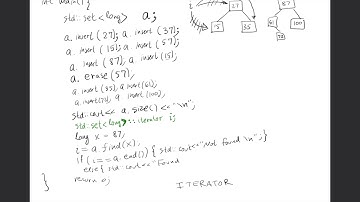 int main() {
std::set<long> a;
a.insert(27); a.insert(37);
a.insert(15); a.insert(57);
a.insert(87), a.insert(15);
a.erase(57),
a.insert(35), a.insert(61);
a.insert(100),
std::cout << a.size() << "\n";
std::set<long>::iterator i;
long x = 87;
i = a.find(x);
if (i == a.end()) { std::cout << "Not found \n"; }
else { std::cout << "Found
return 0;
}
ITERATOR
27
87
15
35
100